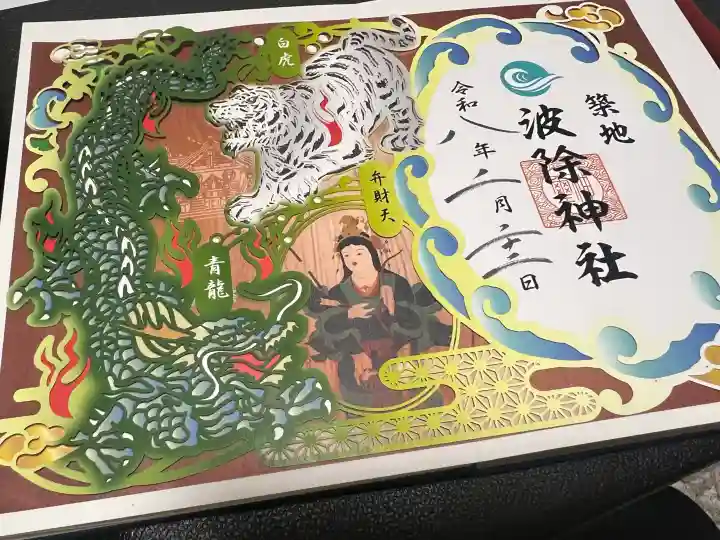 築地
波除神社
令和八年二月二十二日
白虎
弁財天
青龍